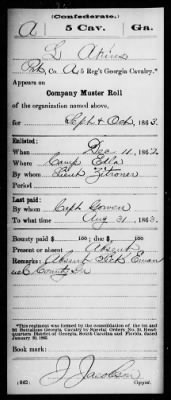 (Confederate.)
A 5 Cav. Ga.
G Akins
Pvt, Co. A, 5 Reg't Georgia Cavalry.*
Appears on
Company Muster Roll
of the organization named above,
for Sept & Oct, 1863.
Enlisted:
When Dec 11, 1862
Where Camp Ella
By whom Lieut Zitroner
Period
Last paid:
By whom Capt Gowen
To what time Aug 31, 1863.
Bounty paid $ 100; due $ 100
Present or absent Absent
Remarks: Absent Sick Eman
uel County Ga
*This regiment was formed by the consolidation of the 1st and 2d Battalions Georgia Cavalry by Special Orders, No. 21, Headquarters District of Georgia, South Carolina and Florida, dated January 20, 1863.
Book mark:
J Jacobson
(642) Copyist.